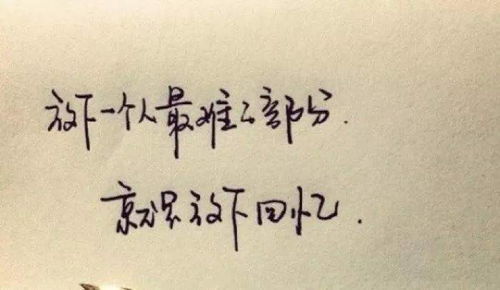 放下一个人最难的部分.
就是放下回忆.